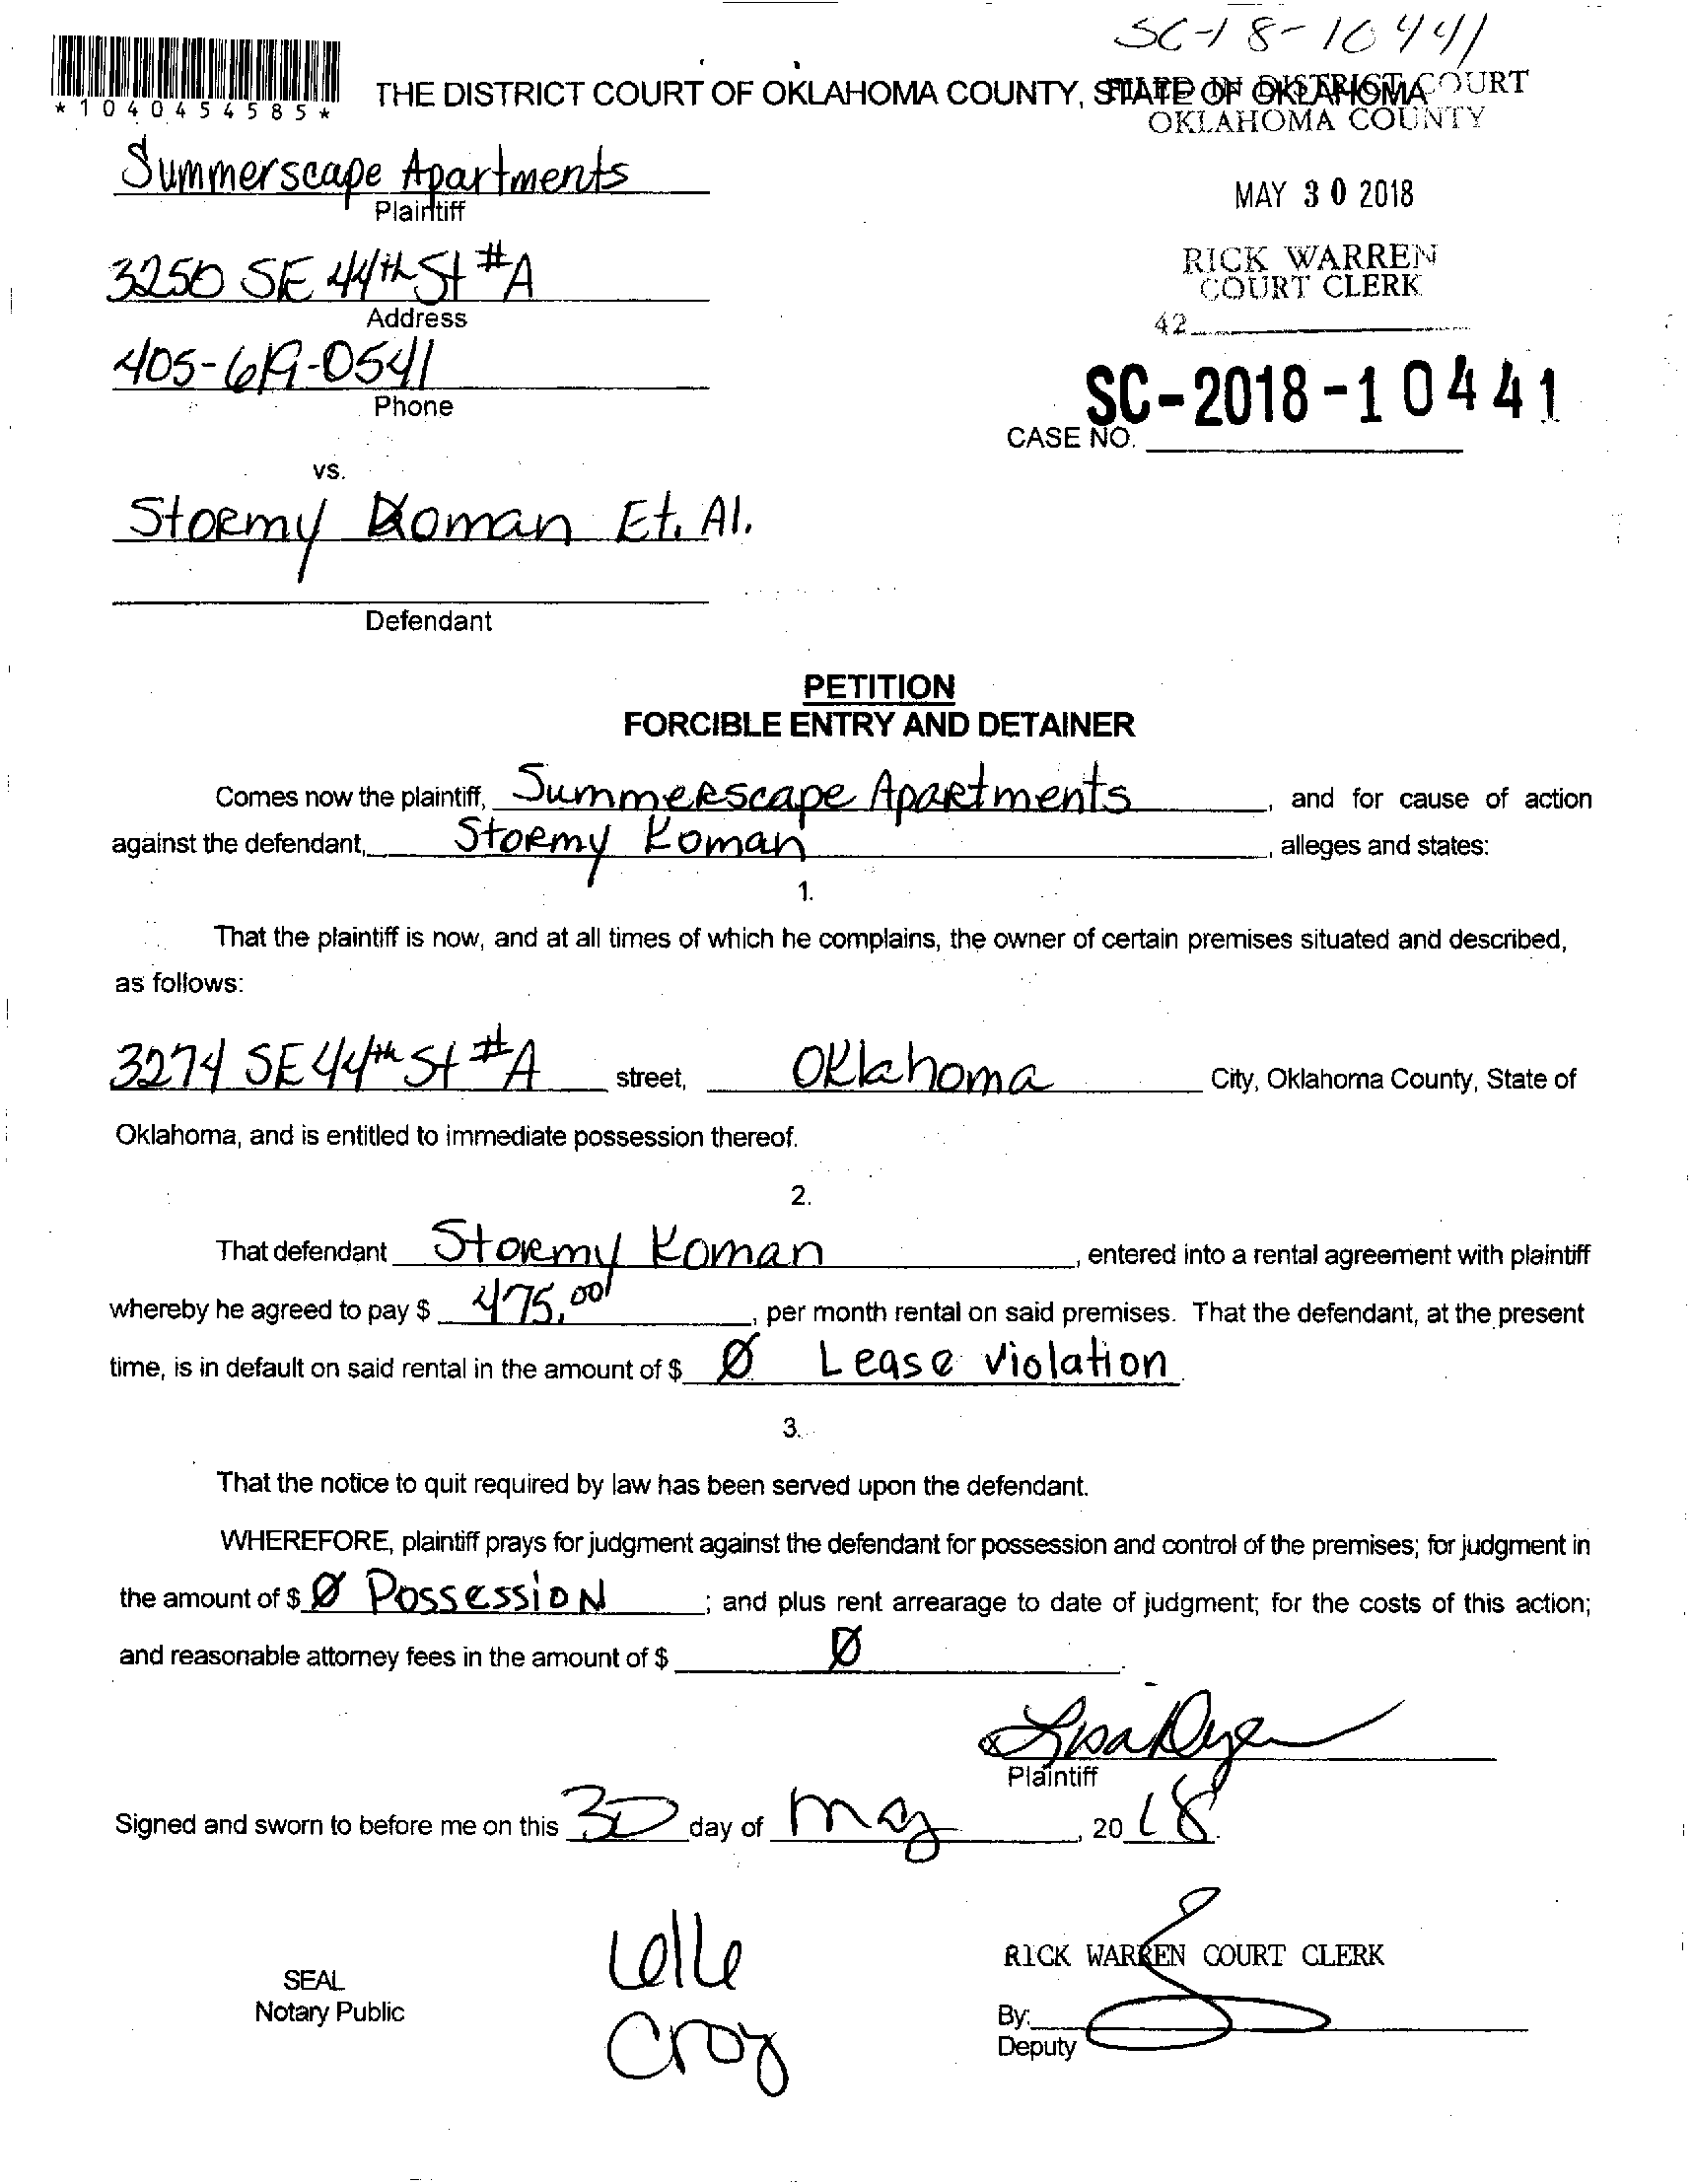 SC-18-10441
*1040454585*
THE DISTRICT COURT OF OKLAHOMA COUNTY, STATE OF OKLAHOMA
FILED IN DISTRICT COURT
OKLAHOMA COUNTY
Summerscape Apartments
Plaintiff
MAY 30 2018
3250 SE 44th St #A
Address
RICK WARREN
COURT CLERK
42
405-619-0541
Phone
SC-2018-10441
CASE NO.
vs.
Stormy Koman Et. Al.
Defendant
PETITION
FORCIBLE ENTRY AND DETAINER
Comes now the plaintiff, Summerscape Apartments, and for cause of action
against the defendant, Stormy Koman, alleges and states:
1.
That the plaintiff is now, and at all times of which he complains, the owner of certain premises situated and described,
as follows:
3274 SE 44th St #A street, Oklahoma City, Oklahoma County, State of
Oklahoma, and is entitled to immediate possession thereof.
2.
That defendant Stormy Koman, entered into a rental agreement with plaintiff
whereby he agreed to pay $ 475.00, per month rental on said premises. That the defendant, at the present
time, is in default on said rental in the amount of $ Ø Lease violation.
3.
That the notice to quit required by law has been served upon the defendant.
WHEREFORE, plaintiff prays for judgment against the defendant for possession and control of the premises; for judgment in
the amount of $ Ø Possession; and plus rent arrearage to date of judgment; for the costs of this action;
and reasonable attorney fees in the amount of $ Ø
Plaintiff
Signed and sworn to before me on this 30 day of May, 2018.
SEAL
Notary Public
RICK WARREN COURT CLERK
By:
Deputy